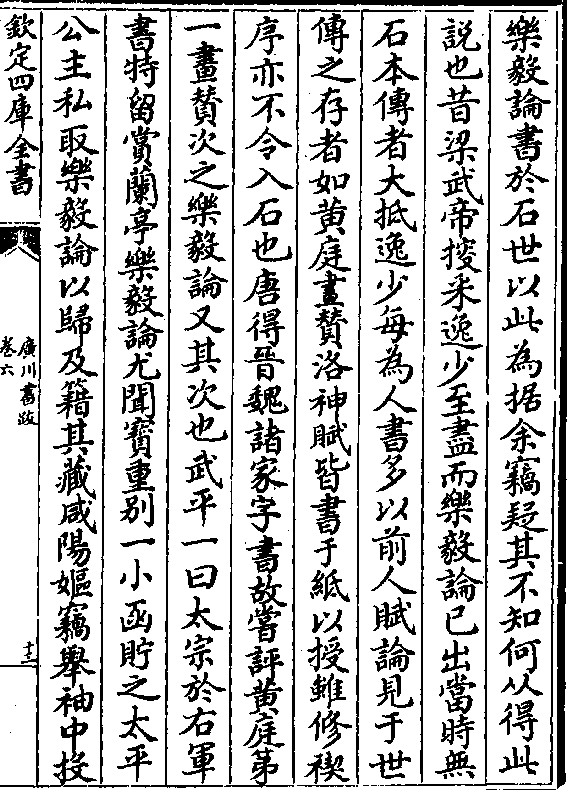 樂毅論書於石世以此為据余竊疑其不知何从得此
説也昔梁武帝搜采逸少至盡而樂毅論已出當時無
石本傳者大抵逸少每為人書多以前人賦論見于世
傳之存者如黄庭畫賛洛神賦皆書于紙以授雖修禊
序亦不令入石也唐得晉魏諸家字書故嘗評黄庭第
一畫賛次之樂毅論又其次也武平一曰太宗於右軍
書特留賞蘭亭樂毅論尤聞寳重别一小函貯之太平
公主私取樂毅論以歸及籍其藏咸陽嫗竊舉袖中投
欽定四庫全書
廣川書跋
卷六
十二